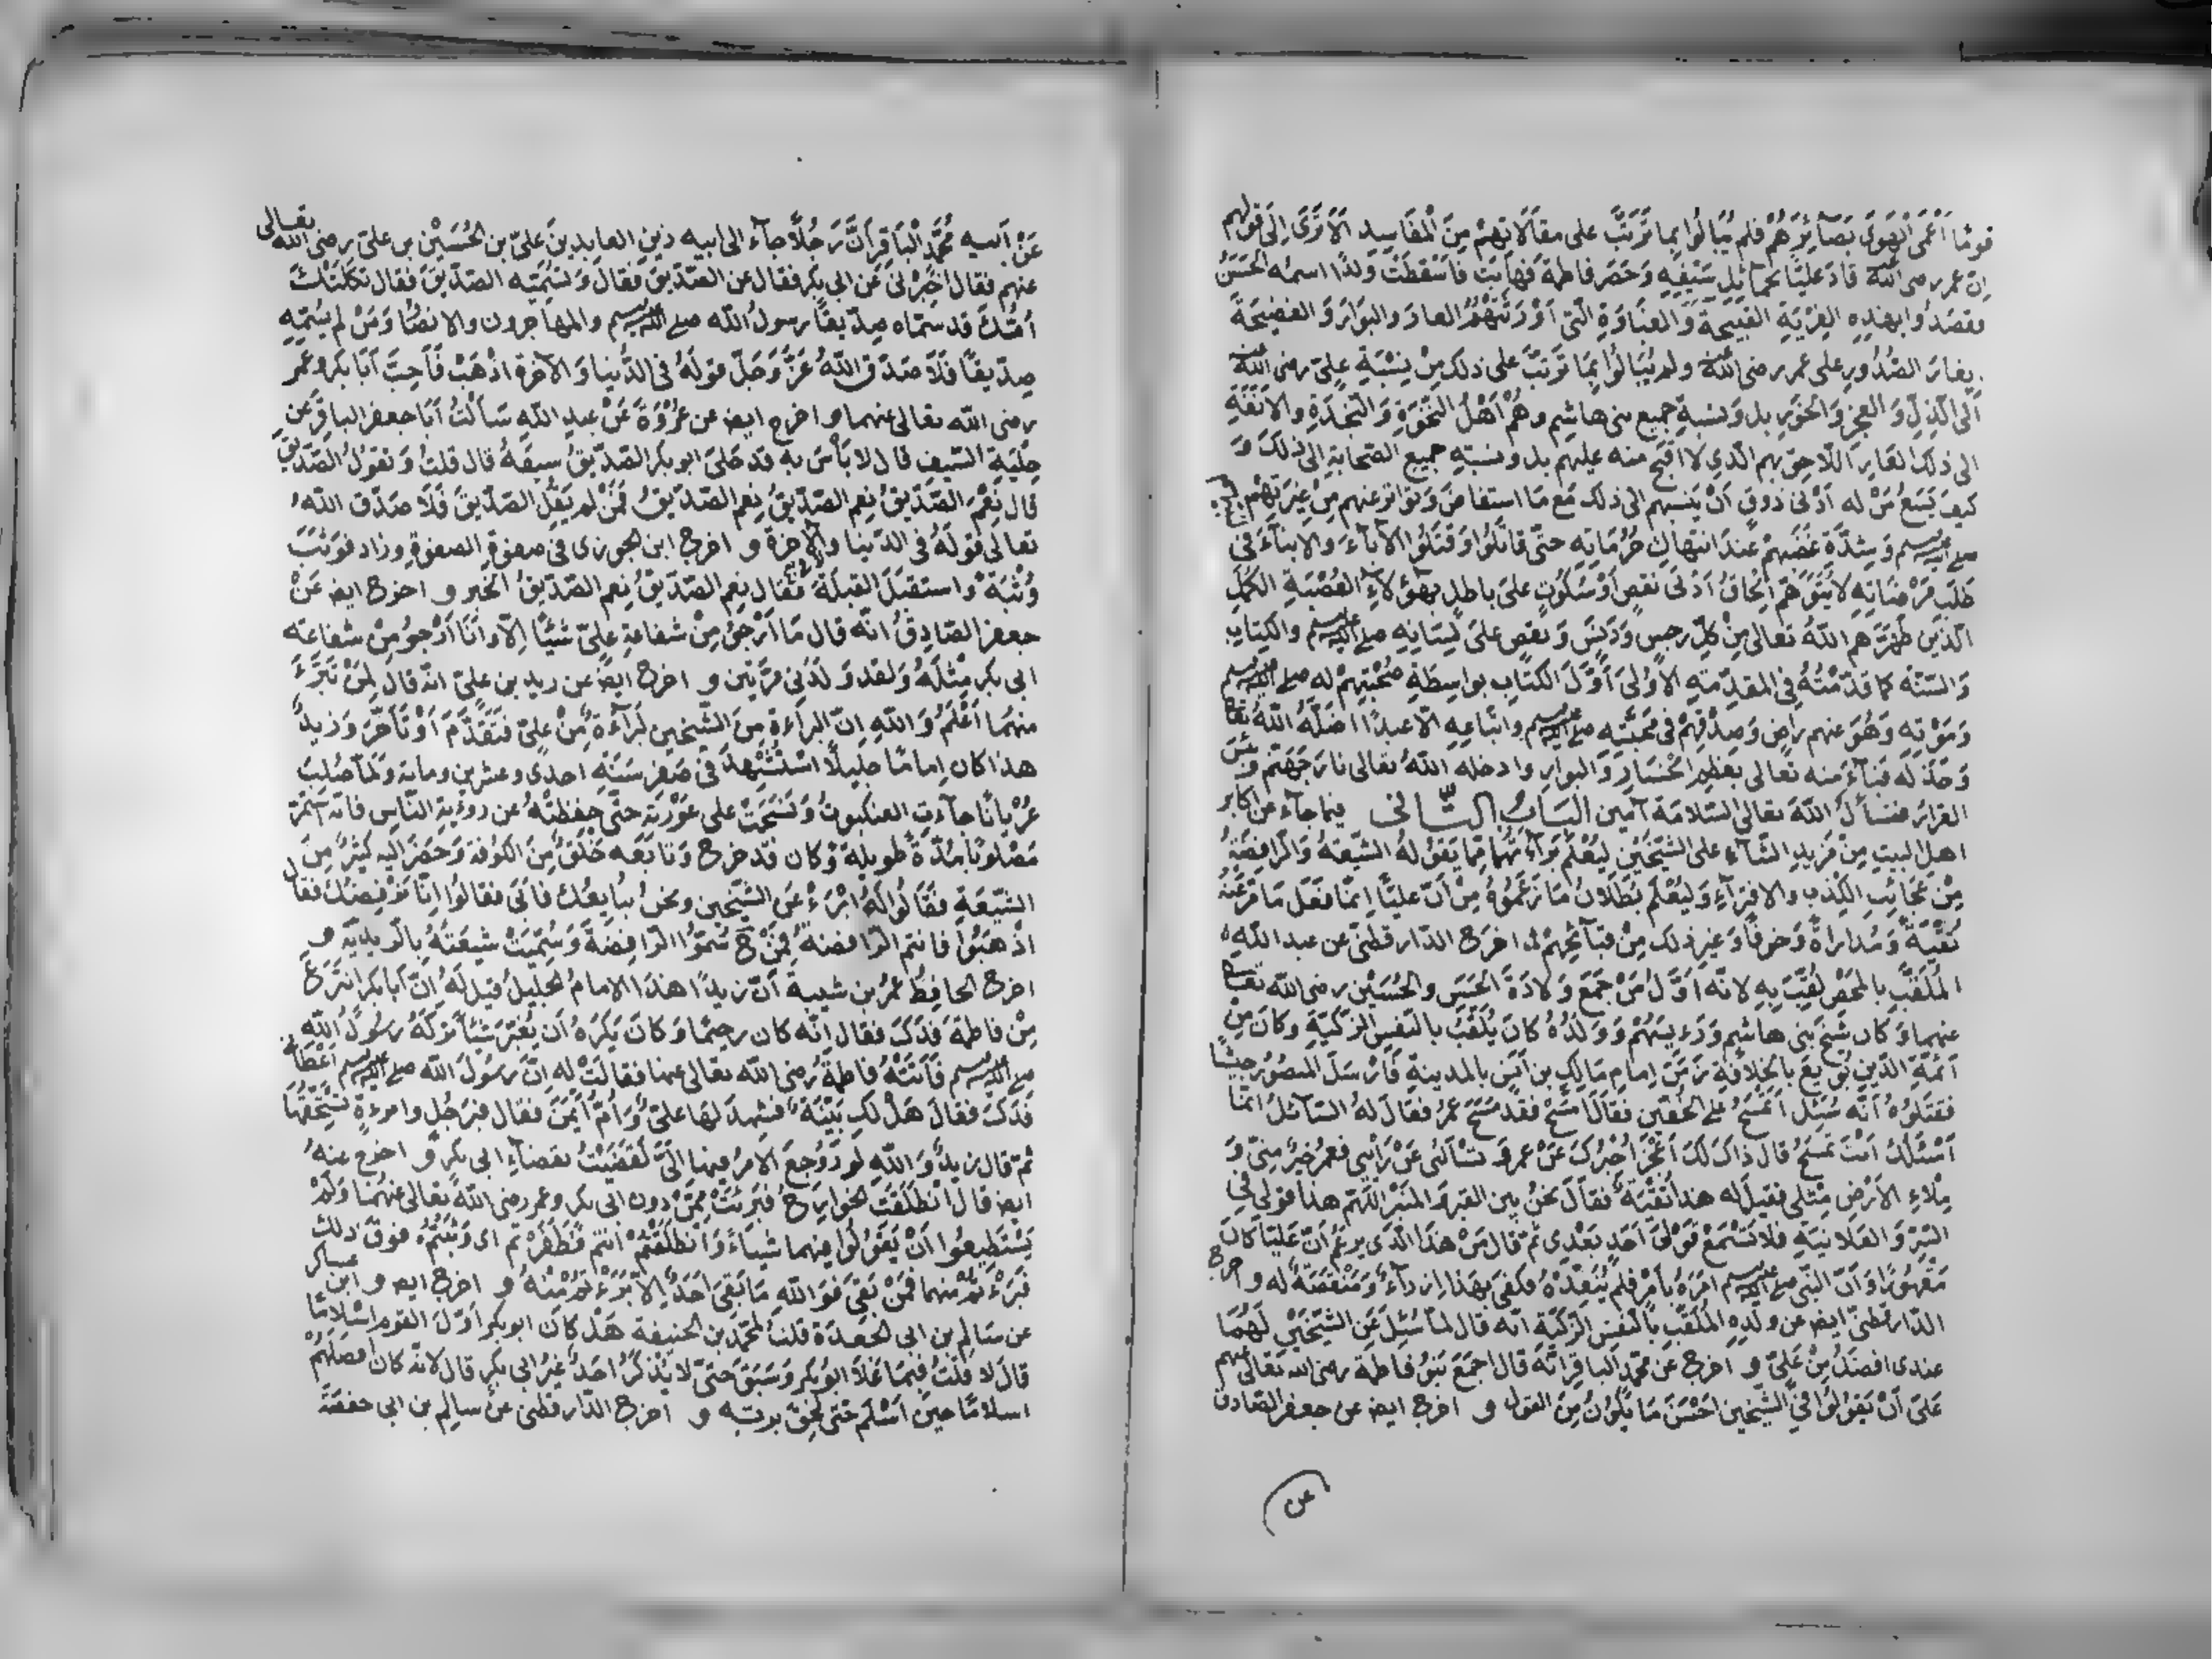 قومًا أعمى الهوى بصائرهم فلم يبالوا بما ترتب على مقالاتهم من المفاسد ألا ترى إلى قولهم
إن عمر رضي الله عنه قاد عليًا بحمائل سيفه وحصر فاطمة فهابت فأسقطت ولدًا اسمه المحسن
فقصدوا بهذه الفرية القبيحة والغباوة التي أورثتهم العار والبوار والفضيحة
إيغار الصدور على عمر رضي الله عنه ولم يبالوا بما ترتب على ذلك من نسبة علي رضي الله عنه
إلى الذل والعجز والخور بل ونسبة جميع بني هاشم وهم أهل النخوة والنجدة والأنفة
إلى ذلك العار اللاحق بهم الذي لا أقبح منه عليهم بل ونسبة جميع الصحابة إلى ذلك و
كيف يسع من له أدنى ذوق أن ينسبهم إلى ذلك مع ما استفاض وتواتر عنهم من غيرتهم
صلى الله عليه وسلم وشدة غضبهم عند انتهاك حرماته حتى قاتلوا وقتلوا الآباء والأبناء في
طلب مرضاته لا يتوهم إلحاق أدنى نقص أو سكوت على باطل بهؤلاء العصبة الكمل
الذين طهرهم الله تعالى من كل رجس ودنس ونقص على لسانه صلى الله عليه وسلم والكتاب
والسنة كما قدمته في المقدمة الأولى أول الكتاب بواسطة صحبتهم له صلى الله عليه وسلم
وموته وهو عنهم راض وصدقهم في محبته صلى الله عليه وسلم واتباعه إلا عبدًا أضله الله تعا
وخذله فباء منه تعالى بعظيم الخسار والبوار وأدخله الله تعالى نار جهنم وبئس
القرار فنسأل الله تعالى السلامة آمين الباب الثاني فيما جاء عن أكابر
أهل البيت من مزيد الثناء على الشيخين ليعلم براءتهما مما يقوله الشيعة والرافضة
من عجائب الكذب والافتراء وليعلم بطلان ما زعموه من أن عليًا إنما فعل ما مر عنه
تقية ومداراة وخوفًا وغير ذلك من قبائحهم أخرج الدارقطني عن عبد الله
الملقب بالمحض لقب به لأنه أول من جمع ولادة الحسن والحسين رضي الله تعالى
عنهما وكان شيخ بني هاشم ورئيسهم وولده كان يلقب بالنفس الزكية وكان من
أئمة الدين بويع بالخلافة زمن إمام مالك بن أنس بالمدينة فأرسل المنصور جيشًا
فقتلوه أنه سئل أتمسح على الخفين فقال أمسح فقد مسح عمر فقال له السائل إنما
أسئلك أنت تمسح قال ذاك لك أعجز أخبرك عن عمر وتسألني عن رأيي فعمر خير مني و
ملاء الأرض مثلي فقيل له هذا تقية فقال نحن بين القبر والمنبر اللهم هذا قولي في
السر والعلانية فلا تسمع قول أحد بعدي ثم قال من هذا الذي يزعم أن عليًا كان
مقهورًا وأن النبي صلى الله عليه وسلم أمره بأمر فلم ينفذه فكفى بهذا إزراء ومنقصة له وأخرج
الدارقطني أيض عن ولده الملقب بالنفس الزكية أنه قال لما سئل عن الشيخين لهما
عندي أفضل من علي و أخرج عن محمد الباقر أنه قال أجمع بنو فاطمة رضي الله تعالى عنهم
على أن يقولوا في الشيخين أحسن ما يكون من القول و أخرج أيض عن جعفر الصادق
عن
عن أبيه محمد الباقر أن رجلًا جاء إلى أبيه زين العابدين علي بن الحسين بن علي رضي الله تعالى
عنهم فقال أخبرني عن أبي بكر فقال عن الصديق فقال وتسميه الصديق فقال ثكلتك
أمك قد سماه صديقًا رسول الله صلى الله عليه وسلم والمهاجرون والأنصار ومن لم يسمه
صديقًا فلا صدق الله عز وجل قوله في الدنيا والآخرة اذهب فأحب أبا بكر وعمر
رضي الله تعالى عنهما و أخرج أيض عن عروة عن عبد الله سألت أبا جعفر الباقر عن
حلية السيف قال لا بأس به قد حلى أبو بكر الصديق سيفه قال قلت وتقول الصديق
قال نعم الصديق نعم الصديق نعم الصديق فمن لم يقل الصديق فلا صدق الله
تعالى قوله في الدنيا والآخرة و أخرج ابن الجوزي في صفوة الصفوة وزاد فوثب
وثبة واستقبل القبلة فقال نعم الصديق نعم الصديق الخبر و أخرج أيض عن
جعفر الصادق أنه قال ما أرجو من شفاعة علي شيئًا إلا وأنا أرجو من شفاعة
أبي بكر مثله ولقد ولدني مرتين و أخرج أيض عن زيد بن علي أنه قال لمن تبرء
منهما أعلم والله إن البراءة من الشيخين لبراءة من علي فتقدم أو تأخر وزيد
هذا كان إمامًا جليلًا استشهد في صفر سنة إحدى وعشرين وماية ولما صلب
عريانًا جاءت العنكبوت ونسجت على عورته حتى حفظته عن رؤية الناس فإنه استمر
مصلوبًا مدة طويلة وكان قد خرج وتابعه خلق من الكوفة وحضر إليه كثير من
الشيعة فقالوا له ابرء عن الشيخين ونحن نبايعك فأبى فقالوا إنا نرفضك فقال
اذهبوا فأنتم الرافضة فمن ح سموا الرافضة وسميت شيعته بالزيدية و
أخرج الحافظ عمر بن شيبة أن زيدًا هذا الإمام الجليل قيل له إن أبا بكر انتزع
من فاطمة فدك فقال إنه كان رحيمًا وكان يكره أن يغير شيئًا تركه رسول الله
صلى الله عليه وسلم فأتته فاطمة رضي الله تعالى عنها فقالت له إن رسول الله صلى الله عليه وسلم أعطاني
فدك فقال هل لك بينة فشهد لها علي وأم أيمن فقال فبرجل وامرءة تستحقيها
ثم قال زيد والله لو رجع الأمر فيها إلي لقضيت بقضاء أبي بكر و أخرج عنه
أيض قال انطلقت الخوارج فبرئت ممن دون أبي بكر وعمر رضي الله تعالى عنهما ولم
يستطيعوا أن يقولوا فيهما شيئًا وانطلقتم أنتم فطفرتم أي وثبتم فوق ذلك
فبرءتم منهما فمن بقي فو الله ما بقي أحد إلا برءتم منه و أخرج أيض و ابن عساكر
عن سالم بن أبي الجعدة قلت لمحمد بن الحنيفة هل كان أبو بكر أول القوم إسلامًا
قال لا قلت فبما علا أبو بكر وسبق حتى لا يذكر أحد غير أبي بكر قال لأنه كان أفضلهم
إسلامًا حين أسلم حتى لحق بربه و أخرج الدارقطني عن سالم بن أبي حفصة